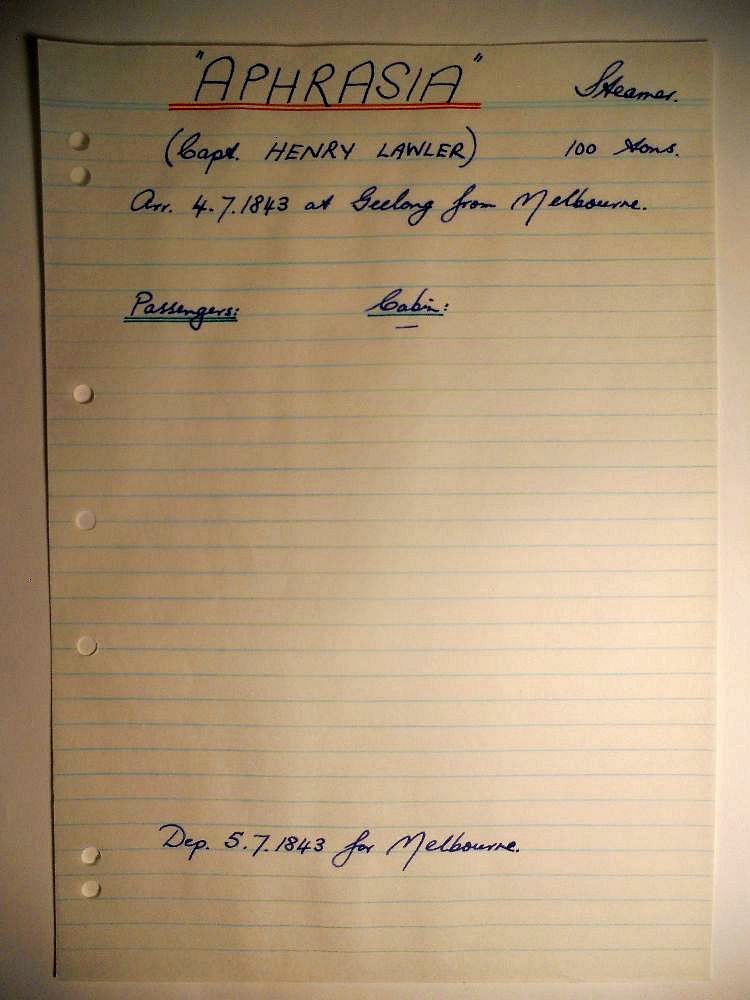 "APHRASIA" Steamer.
(Capt. HENRY LAWLER) 100 tons.
Arr. 4.7.1843 at Geelong from Melbourne.
Passengers: Cabin:
Dep. 5.7.1843 for Melbourne.